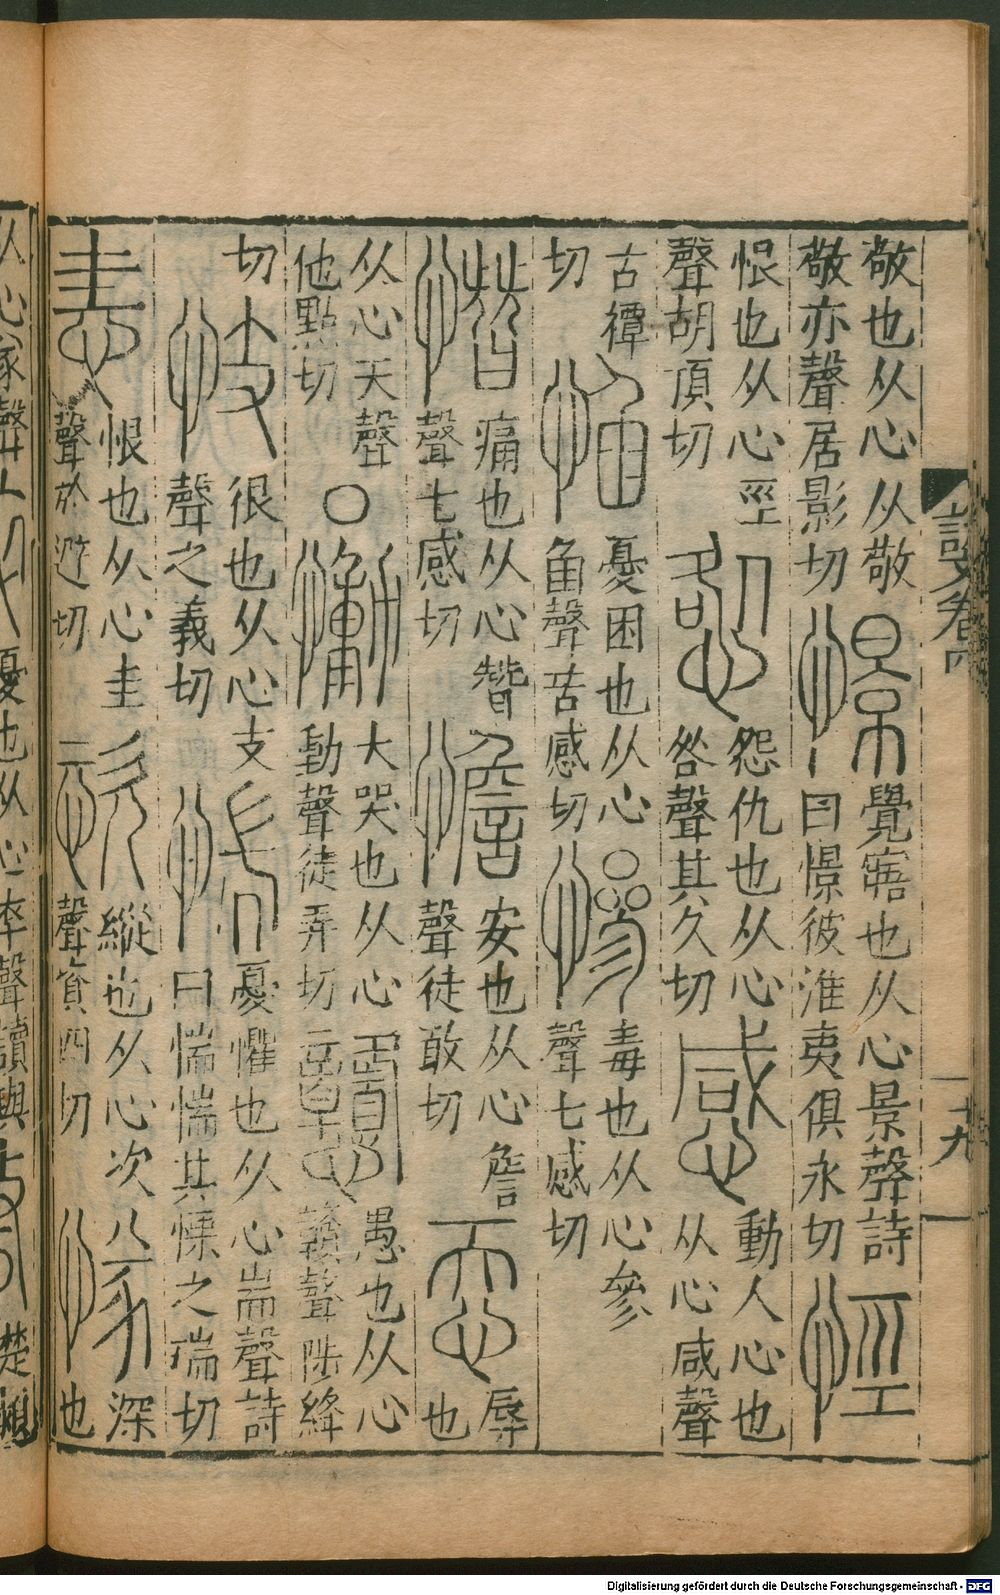 敬也从心从敬敬亦聲居影切憬覺寤也从心景聲詩曰憬彼淮夷俱永切
恨也从心巠聲胡頂切慦怨仇也从心咎聲其久切感動人心也从心咸聲
古禫切惂憂困也从心臽聲苦感切慘毒也从心參聲七感切
憯痛也从心朁聲七感切憺安也从心詹聲徒敢切忝辱也
从心天聲他點切○慟大哭也从心動聲徒弄切戇愚也从心贛聲陟絳
切忮很也从心支聲之義切惴憂懼也从心耑聲詩曰惴惴其慄之瑞切
恚恨也从心圭聲於避切恣縱也从心次聲資四切深也
說文卷
十九
憂也从心
聲讀與
楚
Digitalisierung gefördert durch die Deutsche Forschungsgemeinschaft - DFG